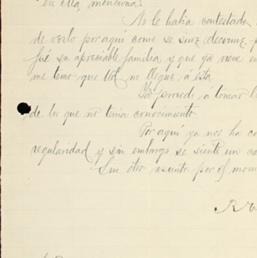 en ella menciona.
No le había contestado
de verlo por aquí como se sirve decirme, p
fué su apreciable familia, y que ya viene en
me temo que Ud. no llegue á ésta
procedí á tomar l
de lo que no tenía conocimiento.
Por aquí ya nos ha co
regularidad y sin embargo se siente un ca
Sin otro asunto por el mom